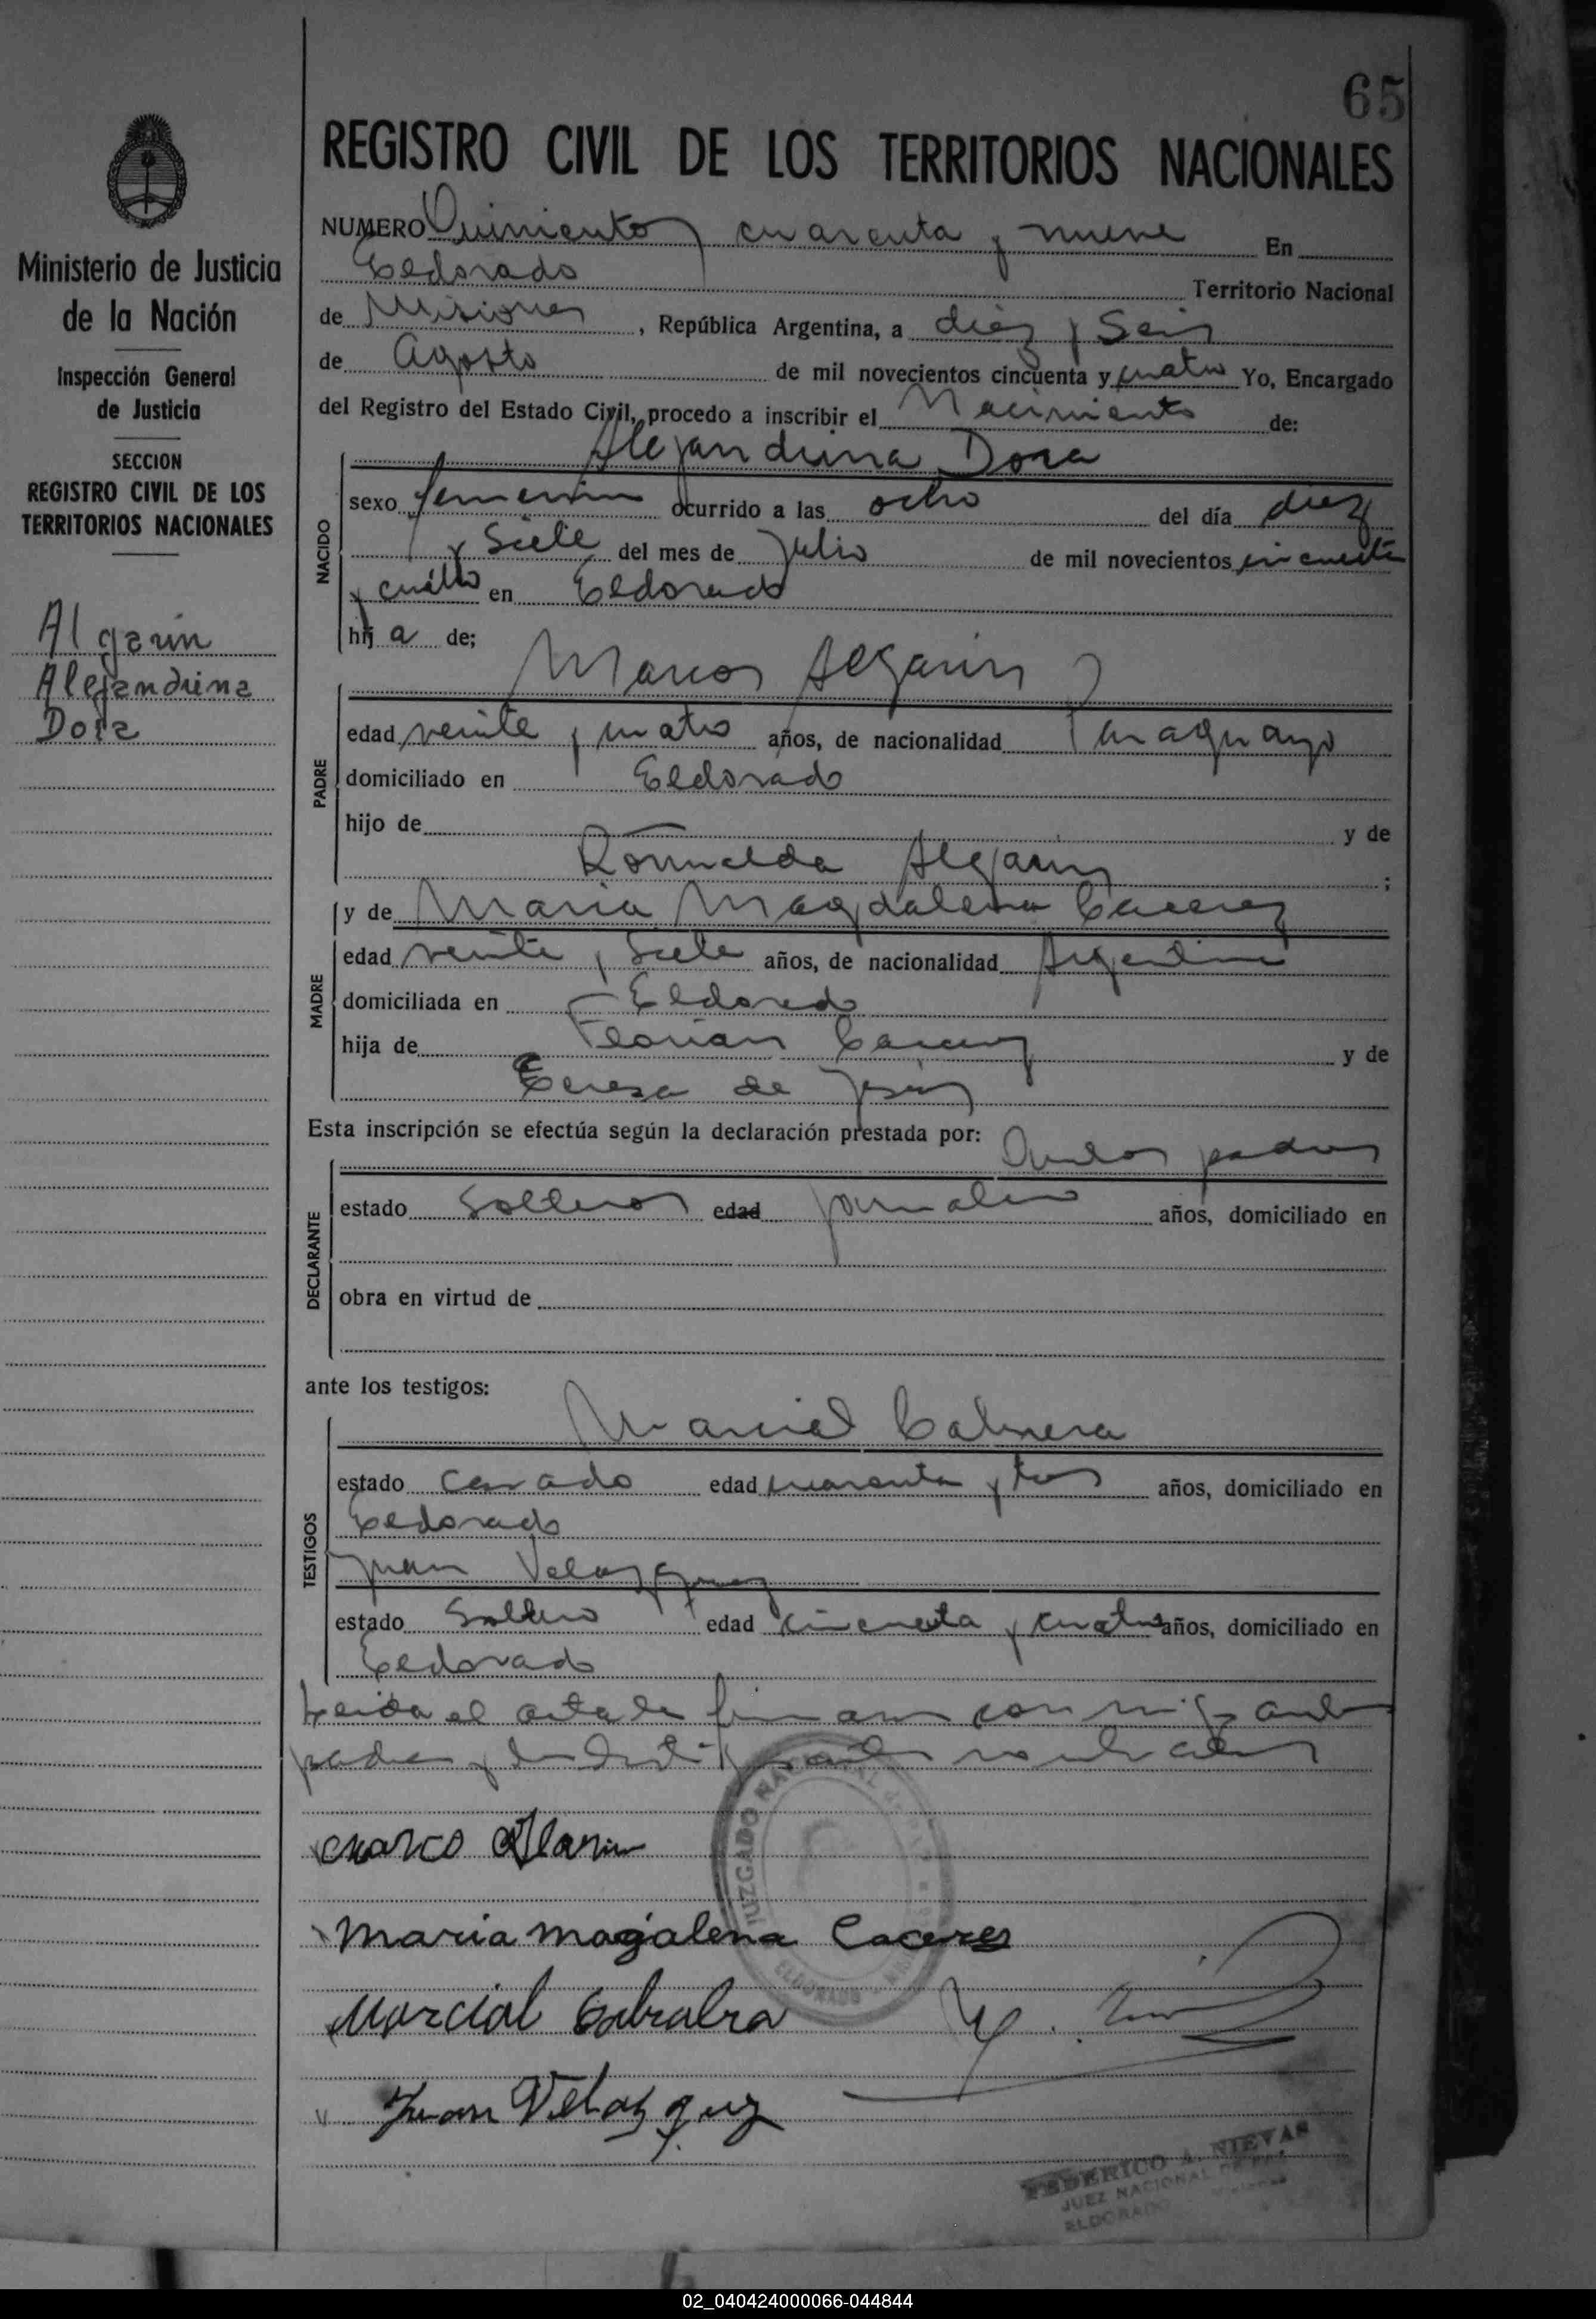 65
REGISTRO CIVIL DE LOS TERRITORIOS NACIONALES
Ministerio de Justicia
de la Nación
Inspección General
de Justicia
SECCION
REGISTRO CIVIL DE LOS
TERRITORIOS NACIONALES
Algarin
Alejandrina
Dora
NUMERO Quinientos cuarenta y nueve En
Eldorado Territorio Nacional
de Misiones, República Argentina, a diez y Seis
de Agosto de mil novecientos cincuenta y cuatro Yo, Encargado
del Registro del Estado Civil, procedo a inscribir el Nacimiento de:
NACIDO
Alejandrina Dora
sexo femenino ocurrido a las ocho del día diez
y Siete del mes de Julio de mil novecientos cincuenta
y cuatro en Eldorado
hija de;
PADRE
Marcos Algarin
edad veinte y cuatro años, de nacionalidad Paraguayo
domiciliado en Eldorado
hijo de y de
Romualda Algarin ;
MADRE
y de Maria Magdalena Caceres
edad veinte y Siete años, de nacionalidad Argentina
domiciliada en Eldorado
hija de Florian Caceres y de
Teresa de Jesús
Esta inscripción se efectúa según la declaración prestada por: Ambos padres
DECLARANTE
estado Solteros edad jornalero años, domiciliado en
obra en virtud de
ante los testigos:
TESTIGOS
Marcial Cabrera
estado casado edad cuarenta y tres años, domiciliado en
Eldorado
Juan Velazquez
estado Soltero edad cincuenta y cuatro años, domiciliado en
Eldorado
Leida el acta la firman conmigo
padres y
JUZGADO NACIONAL de PAZ
ELDORADO
Marco Algarin
Maria magalena Caceres
Marcial Cabralra
Juan Velazquez
FEDERICO A. NIEVAS
JUEZ NACIONAL DE PAZ
ELDORADO Misiones
02_040424000066-044844